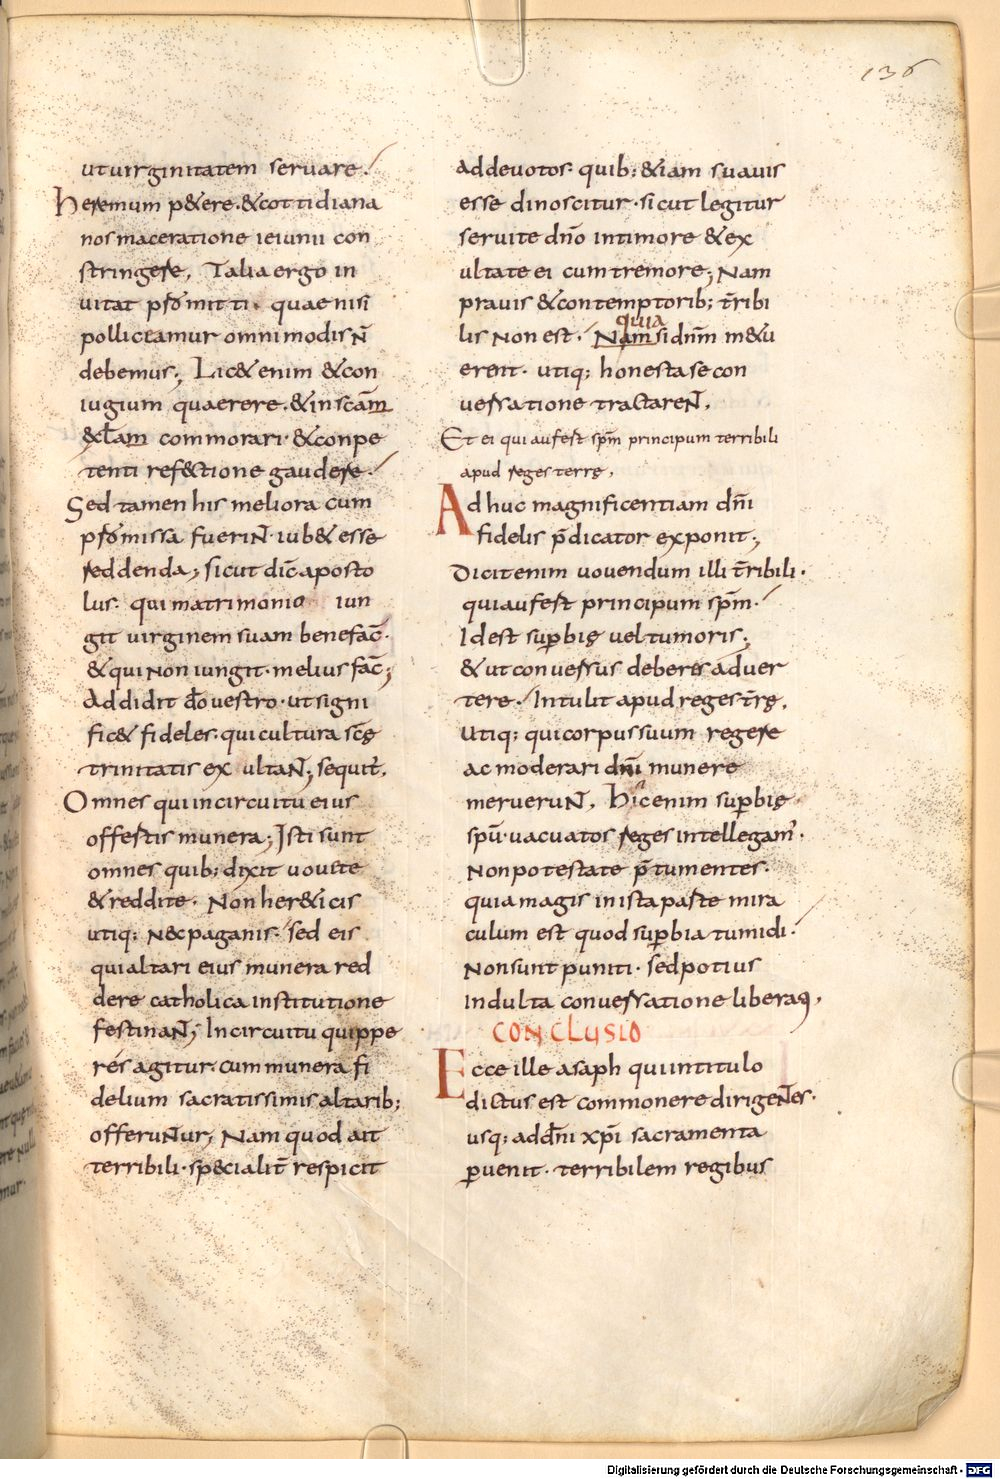 136
ut uirginitatem seruare.
heremum p&ere. &cottidiana
nos maceratione ieiunii con
stringere, Talia ergo in
uitat promitti. quae nisi
polliceamur omnimodis n̄
debemus; Lic& enim &con
iugium quaerere. &in scām
&cl̄am commorari· &conpe
tenti refectione gaudere.
Sed tamen his meliora cum
promissa fuerint· iub& esse
reddenda; sicut dic̄ aposto
lus· qui matrimonio iun
git uirginem suam bene fac̄·
&qui non iungit· melius fac̄;
Addidit dō uestro· ut signi
fic& fideles· qui cultura scę
trinitatis exultant; sequit̄,
Omnes qui in circuitu eius
offertis munera; Isti sunt
omnes quib; dixit uouete
&reddite. Non her&icis
utiq; nec paganis· sed eis
qui altari eius munera red
dere catholica institutione
festinant; In circuitu quippe
rés agitur· cum munera fi
delium sacratissimis altarib;
offeruntur; Nam quod ait
terribili· specialit̄ respicit
ad deuotos· quib; &iam suauis
esse dinoscitur· sicut legitur
seruite dn̄o in timore &ex
ultate ei cum tremore; Nam
prauis &contemptorib; t̄ribi
quia
lis non est. Nam si dn̄m m&u
erent· utiq; honesta se con
uersatione tractarent,
Et ei qui aufert sp̄m principum terribili
apud reges terrę,
Adhuc magnificentiam dn̄i
fidelis p̄dicator exponit;
Dicit enim uouendum illi t̄ribili·
qui aufert principum sp̄m.
Id est sup̄bię uel tumoris;
& ut conuersus deberes aduer
tere. Intulit apud reges t̄rę,
Utiq; qui corpus suum regere
ac moderari dn̄i munere
meruerunt, Hic enim sup̄bię
spū· uacuatos reges intellegam'·
Non potestate p̄tumentes·
quia magis in ista parte mira
culum est quod sup̄bia tumidi·
non sunt puniti· sed potius
indulta conuersatione liberaq,
CONCLUSIO
Ecce ille asaph qui in titulo
dictus est commonere dirigentes·
usq; ad dn̄i xp̄i sacramenta
p̄uenit· terribilem regibus
Digitalisierung gefördert durch die Deutsche Forschungsgemeinschaft - DFG